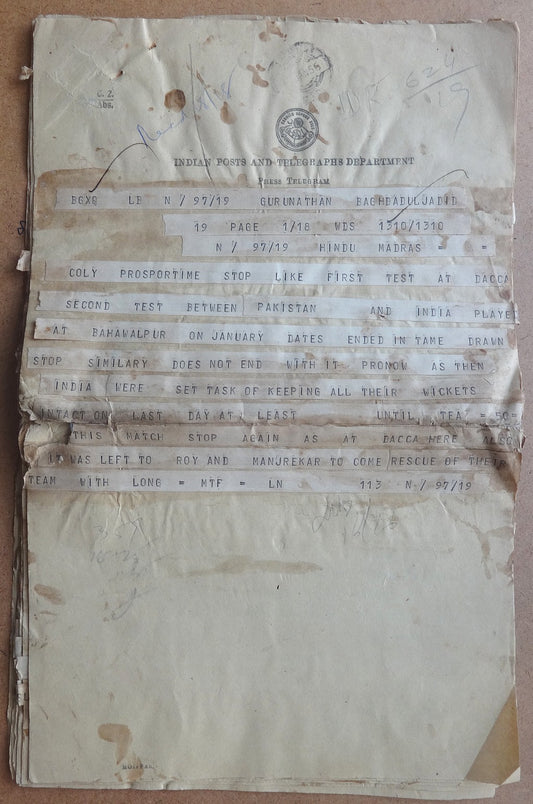 G. Z.
Abs.
624
19
INDIAN POSTS AND TELEGRAPHS DEPARTMENT
PRESS TELEGRAM
BGXQ LB N/97/19 GURUNATHAN BAGHDADULJADID
19 PAGE 1/18 WDS 1310/1310
N/97/19 HINDU MADRAS = 0 =
COLY PROSPORTIME STOP LIKE FIRST TEST AT DACCA
SECOND TEST BETWEEN PAKISTAN AND INDIA PLAYED
AT BAHAWALPUR ON JANUARY DATES ENDED IN TAME DRAWN
STOP SIMILARY DOES NOT END WITH IT PRONOW AS THEN
INDIA WERE SET TASK OF KEEPING ALL THEIR WICKETS
INTACT ON LAST DAY AT LEAST UNTIL TEA = 50=
THIS MATCH STOP AGAIN AS AT DACCA HERE ALSO
IT WAS LEFT TO ROY AND MANJREKAR TO COME RESCUE OF THEIR
TEAM WITH LONG = MTF = LN 113 N/97/19